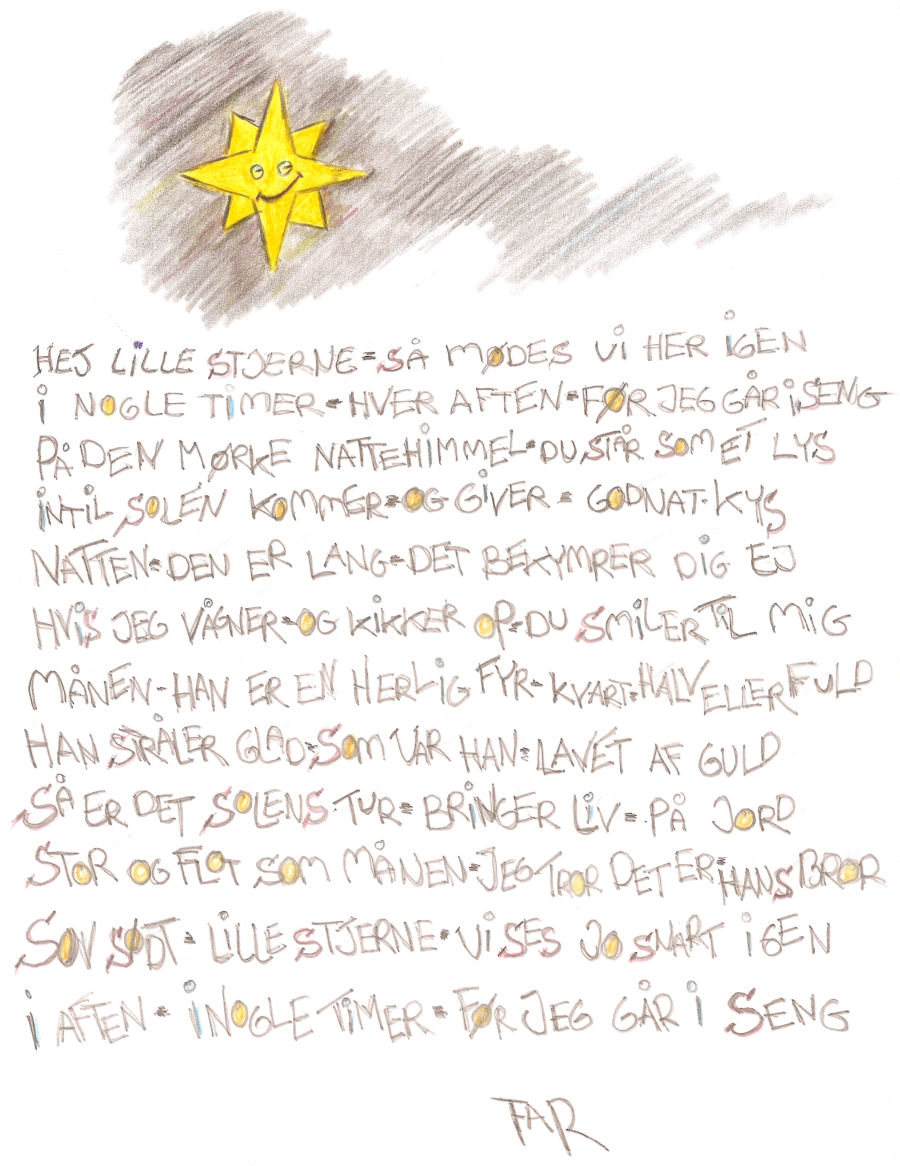 HEJ LiLLE STJERNE=SÅ MØDES Vi HER iGEN
i NOGLE TiMER=HVER AFTEN=FØR JEG GÅR i SENG
PÅ DEN MØRKE NATTEHiMMEL=DU STÅR SOM ET LYS
iNTiL SOLEN KOMMER=OG GiVER=GODNAT-KYS
NATTEN=DEN ER LANG=DET BEKYMRER DiG EJ
HViS JEG VÅGNER=OG KiKKER OP=DU SMiLER TiL MiG
MÅNEN-HAN ER EN HERLiG FYR-KVART=HALV ELLER FULD
HAN STRÅLER GLAD=SOM VAR HAN=LAVET AF GULD
SÅ ER DET SOLENS-TUR=BRiNGER LiV=PÅ JORD
STOR OG FLOT SOM MÅNEN=JEG TROR DET ER=HANS BROR
SOV SØDT=LiLLE STJERNE=Vi SES JO SNART iGEN
i AFTEN=i NOGLE TiMER=FØR JEG GÅR i SENG
FAR